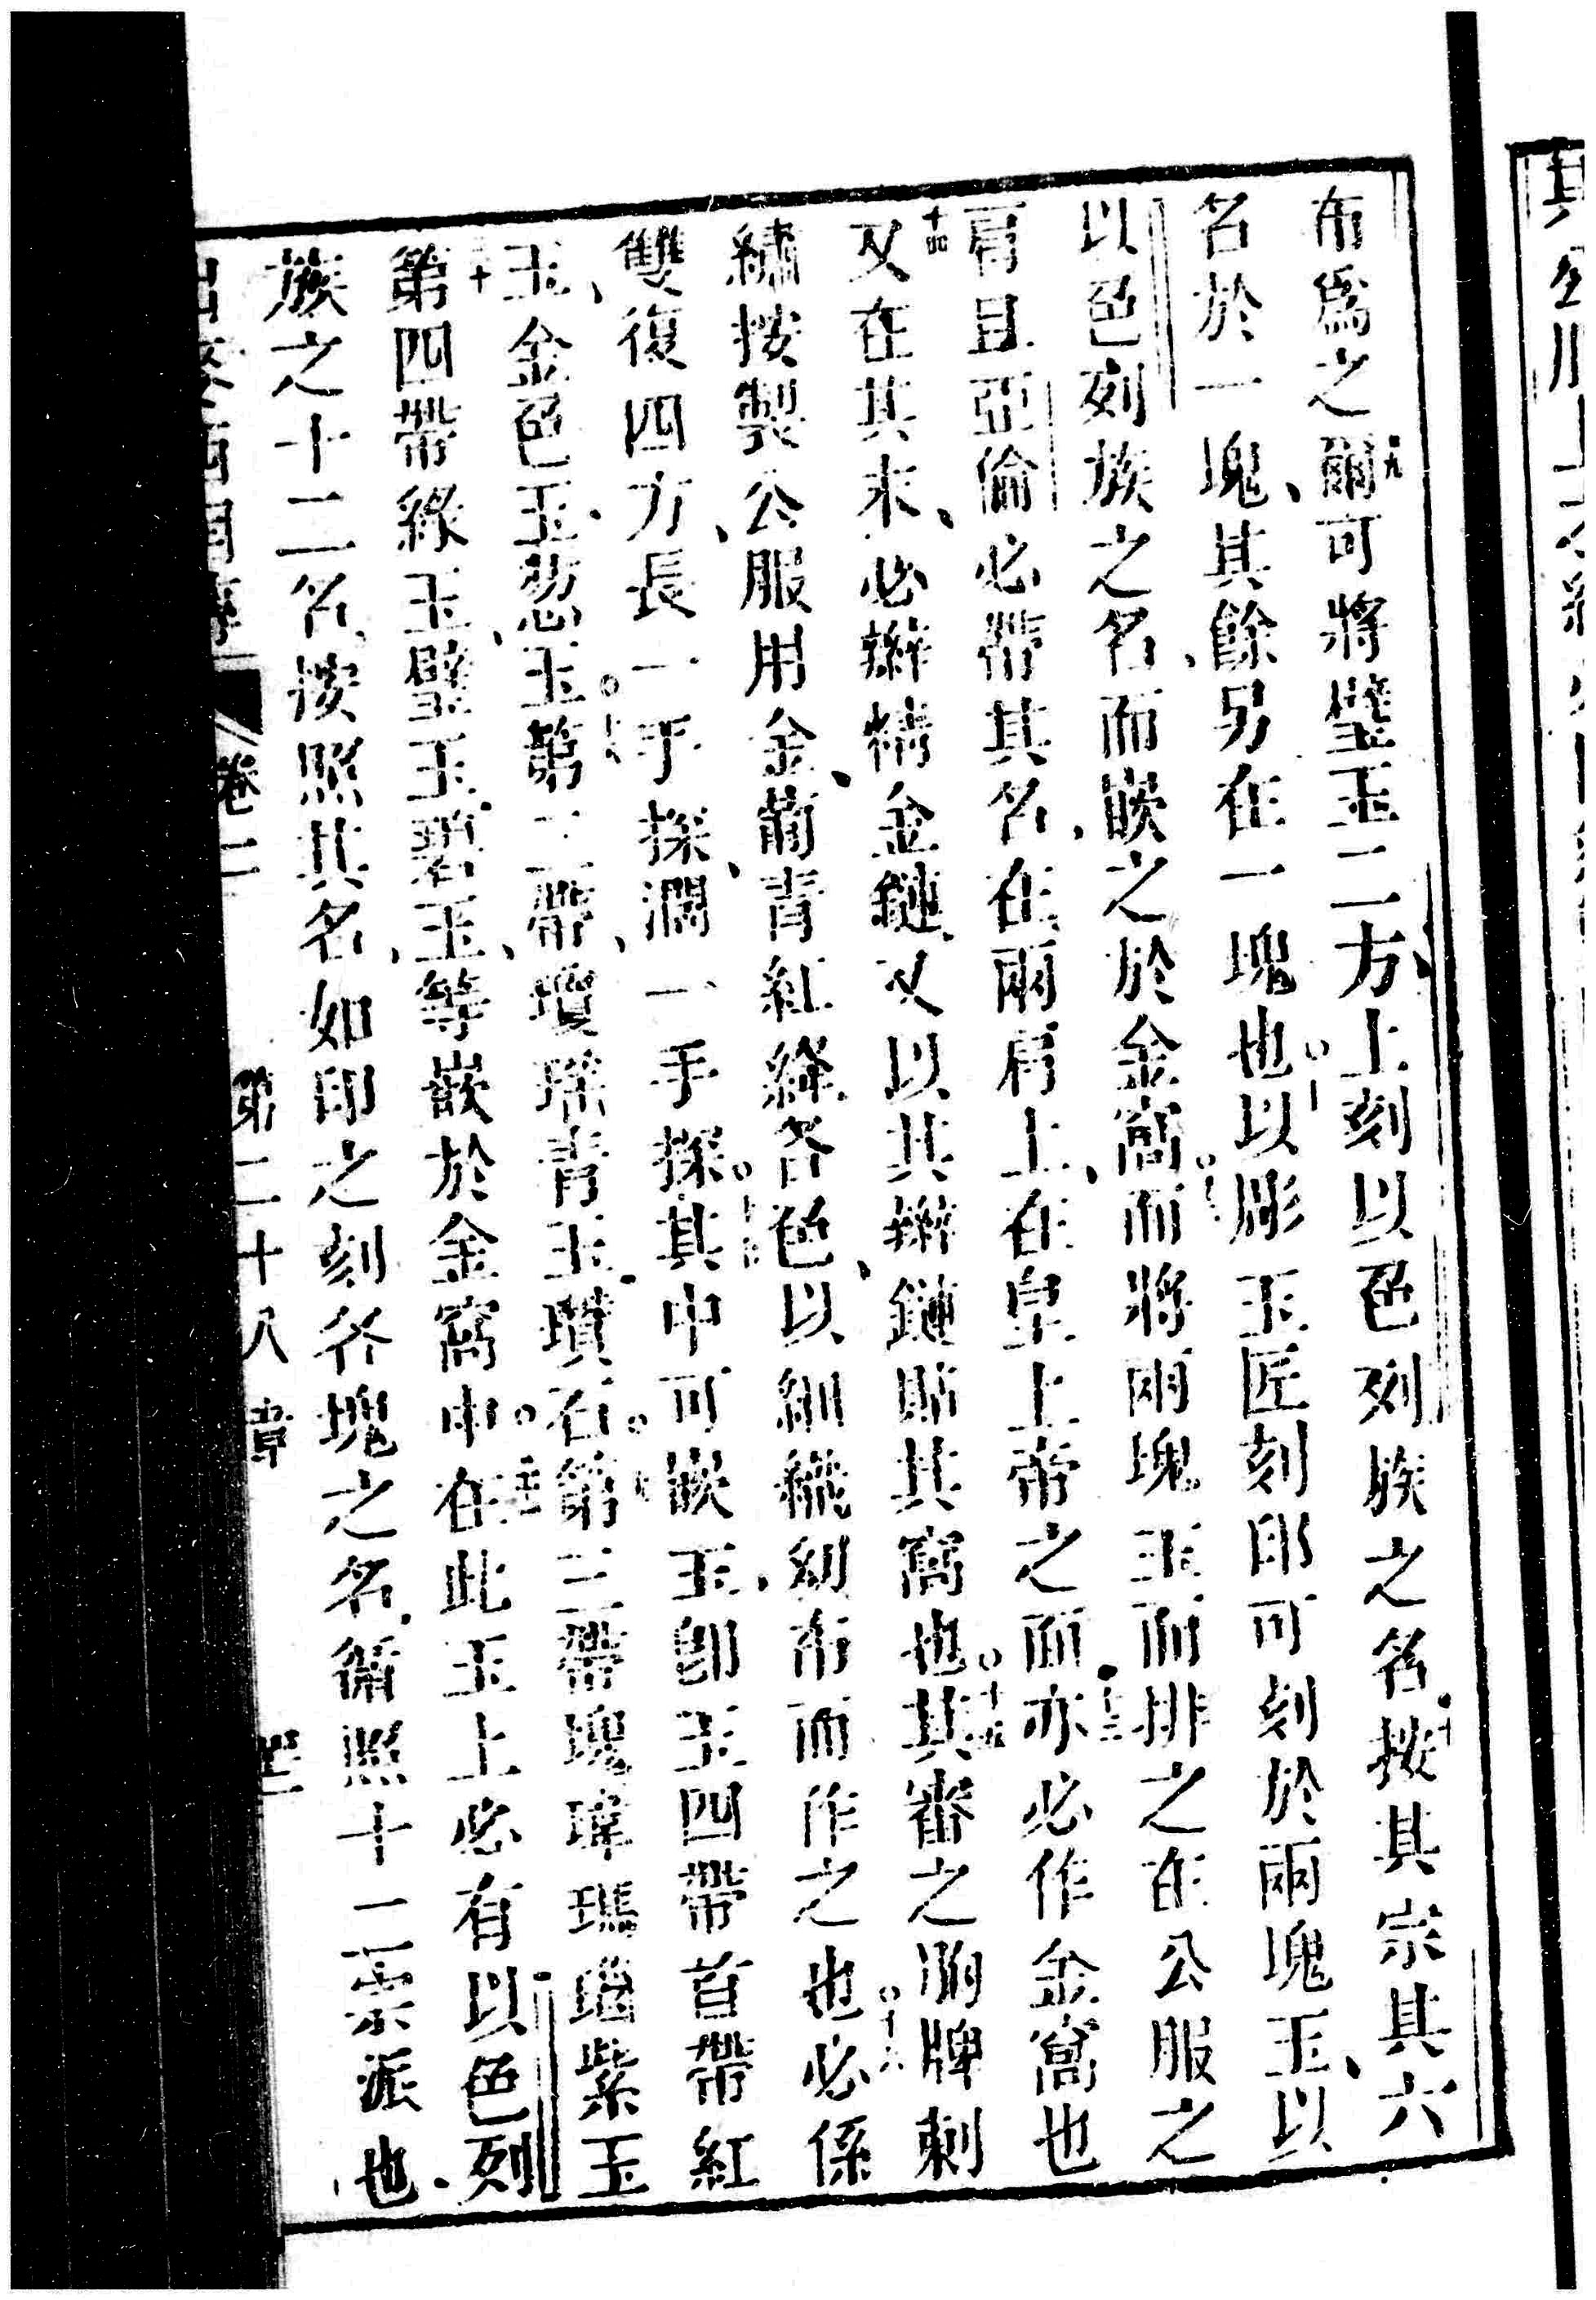 布爲之爾可將璧玉二方上刻以色列族之名按其宗其六
名於一塊、其餘另在一塊也以彫玉匠刻印可刻於兩塊玉、以
以色列族之名、而嵌之於金窩而將兩塊玉而排之在公服之
肩且亞倫必帶其名、在兩肩上、在皇上上帝之面亦必作金窩也
又在其末、必辮精金鏈又以其辮鏈貼其窩也其審之胸牌刺
繡按製公服用金、葡青紅絳各色、以細織幼布而作之也必係
雙復四方、長一手探、濶一手探其中可嵌玉、卽玉四帶首帶紅
玉、金色玉、葱玉第二帶、瓊瑤青玉、瓆石第三帶瑰瑋瑪瑙紫玉
第四帶綠玉、璧玉、碧玉、等嵌於金窩中在此玉上必有以色列
族之十二名、按照其名、如印之刻各塊之名、循照十二宗派也
卷二 第二十八章